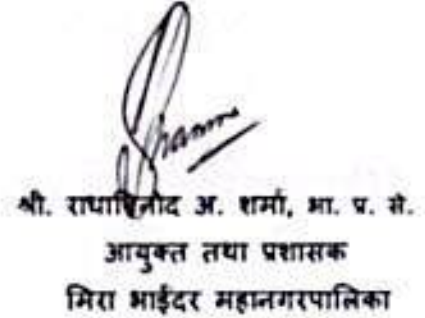 श्री. राधाबिनोद अ. शर्मा, भा. प्र. से.
आयुक्त तथा प्रशासक
मिरा भाईंदर महानगरपालिका